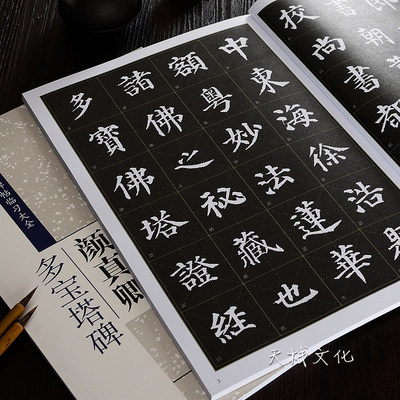 郎
書朝
校尚書都
中東海徐浩
額粵妙法蓮華
諸佛之祕藏也
多寶佛塔證經
帖临习大全
颜真卿
多宝塔碑
文化